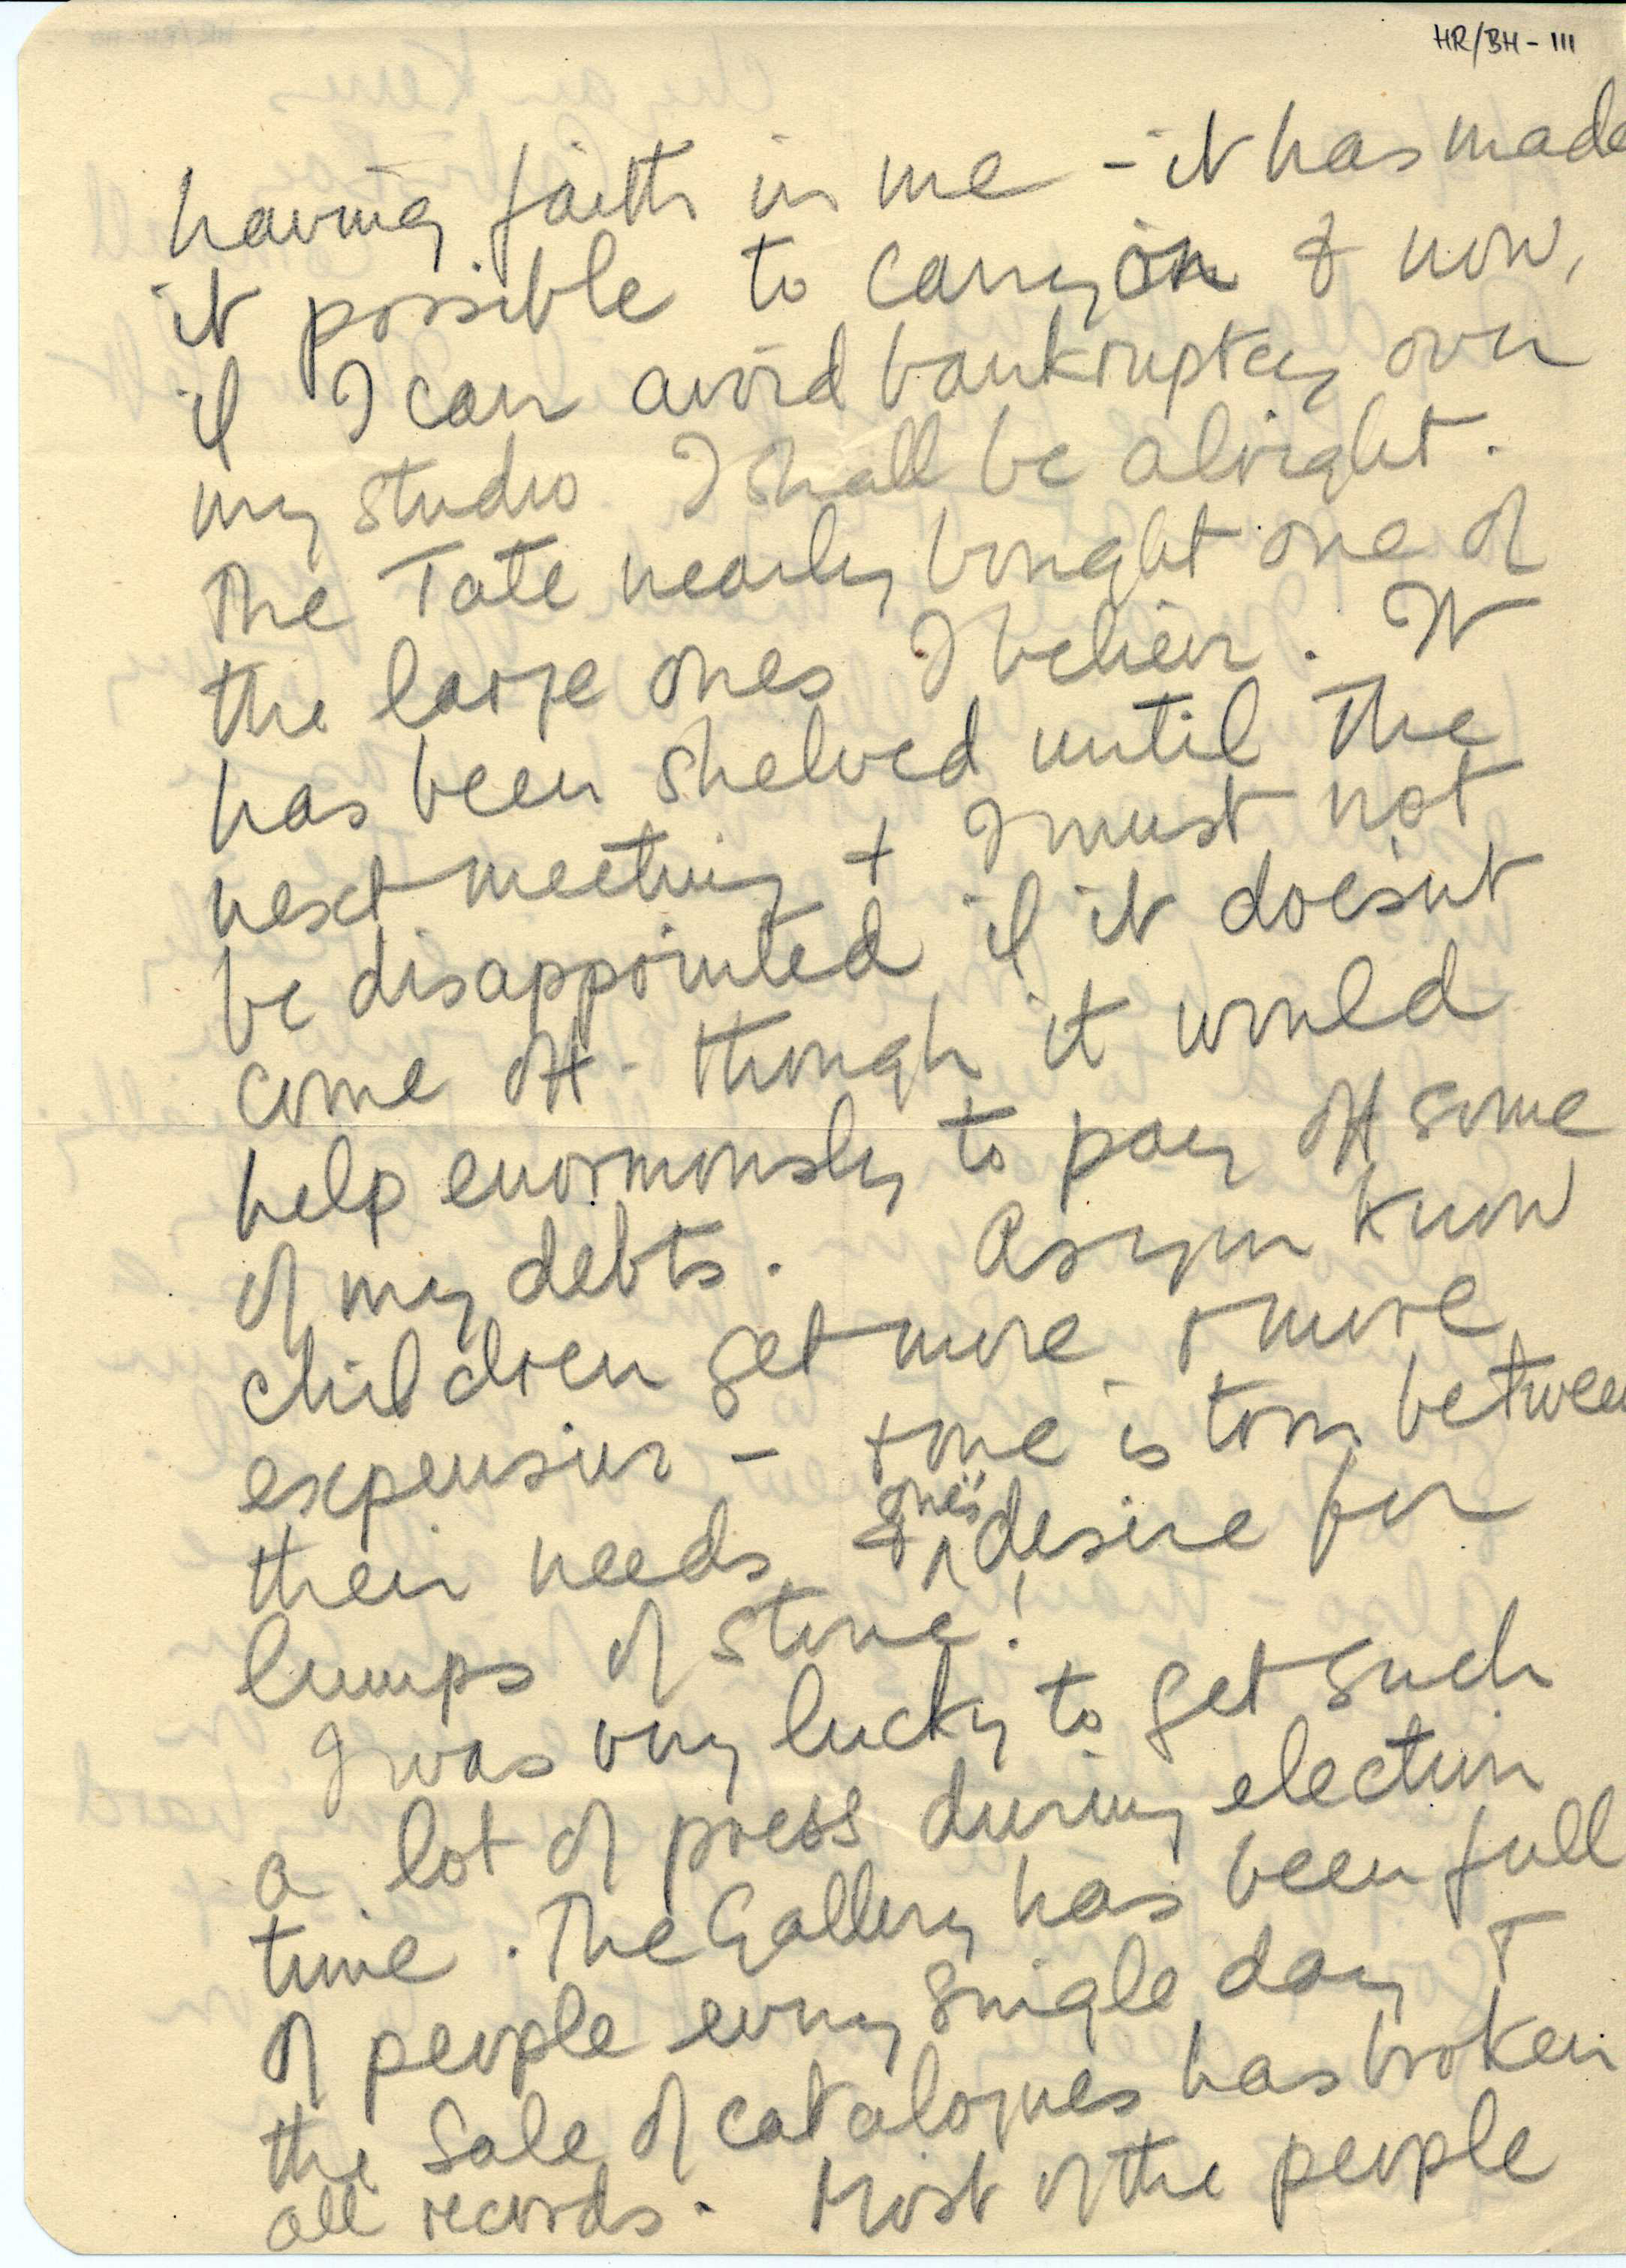 HR/BH - III
having faith in me - it has made
it possible to carry on & now,
if I can avoid bankruptcy over
my studio I shall be alright.
The Tate nearly bought one of
the large ones I believe. It
has been shelved until the
next meeting + I must not
be disappointed if it doesn't
come off - though it would
help enormously to pay off some
of my debts. As you know
children get more & more
expensive - + one is torn between
their needs & one's desire for
lumps of stone!
I was very lucky to get such
a lot of press during election
time. The Gallery has been full
of people every single day +
the sale of catalogues has broken
all records. Most of the people